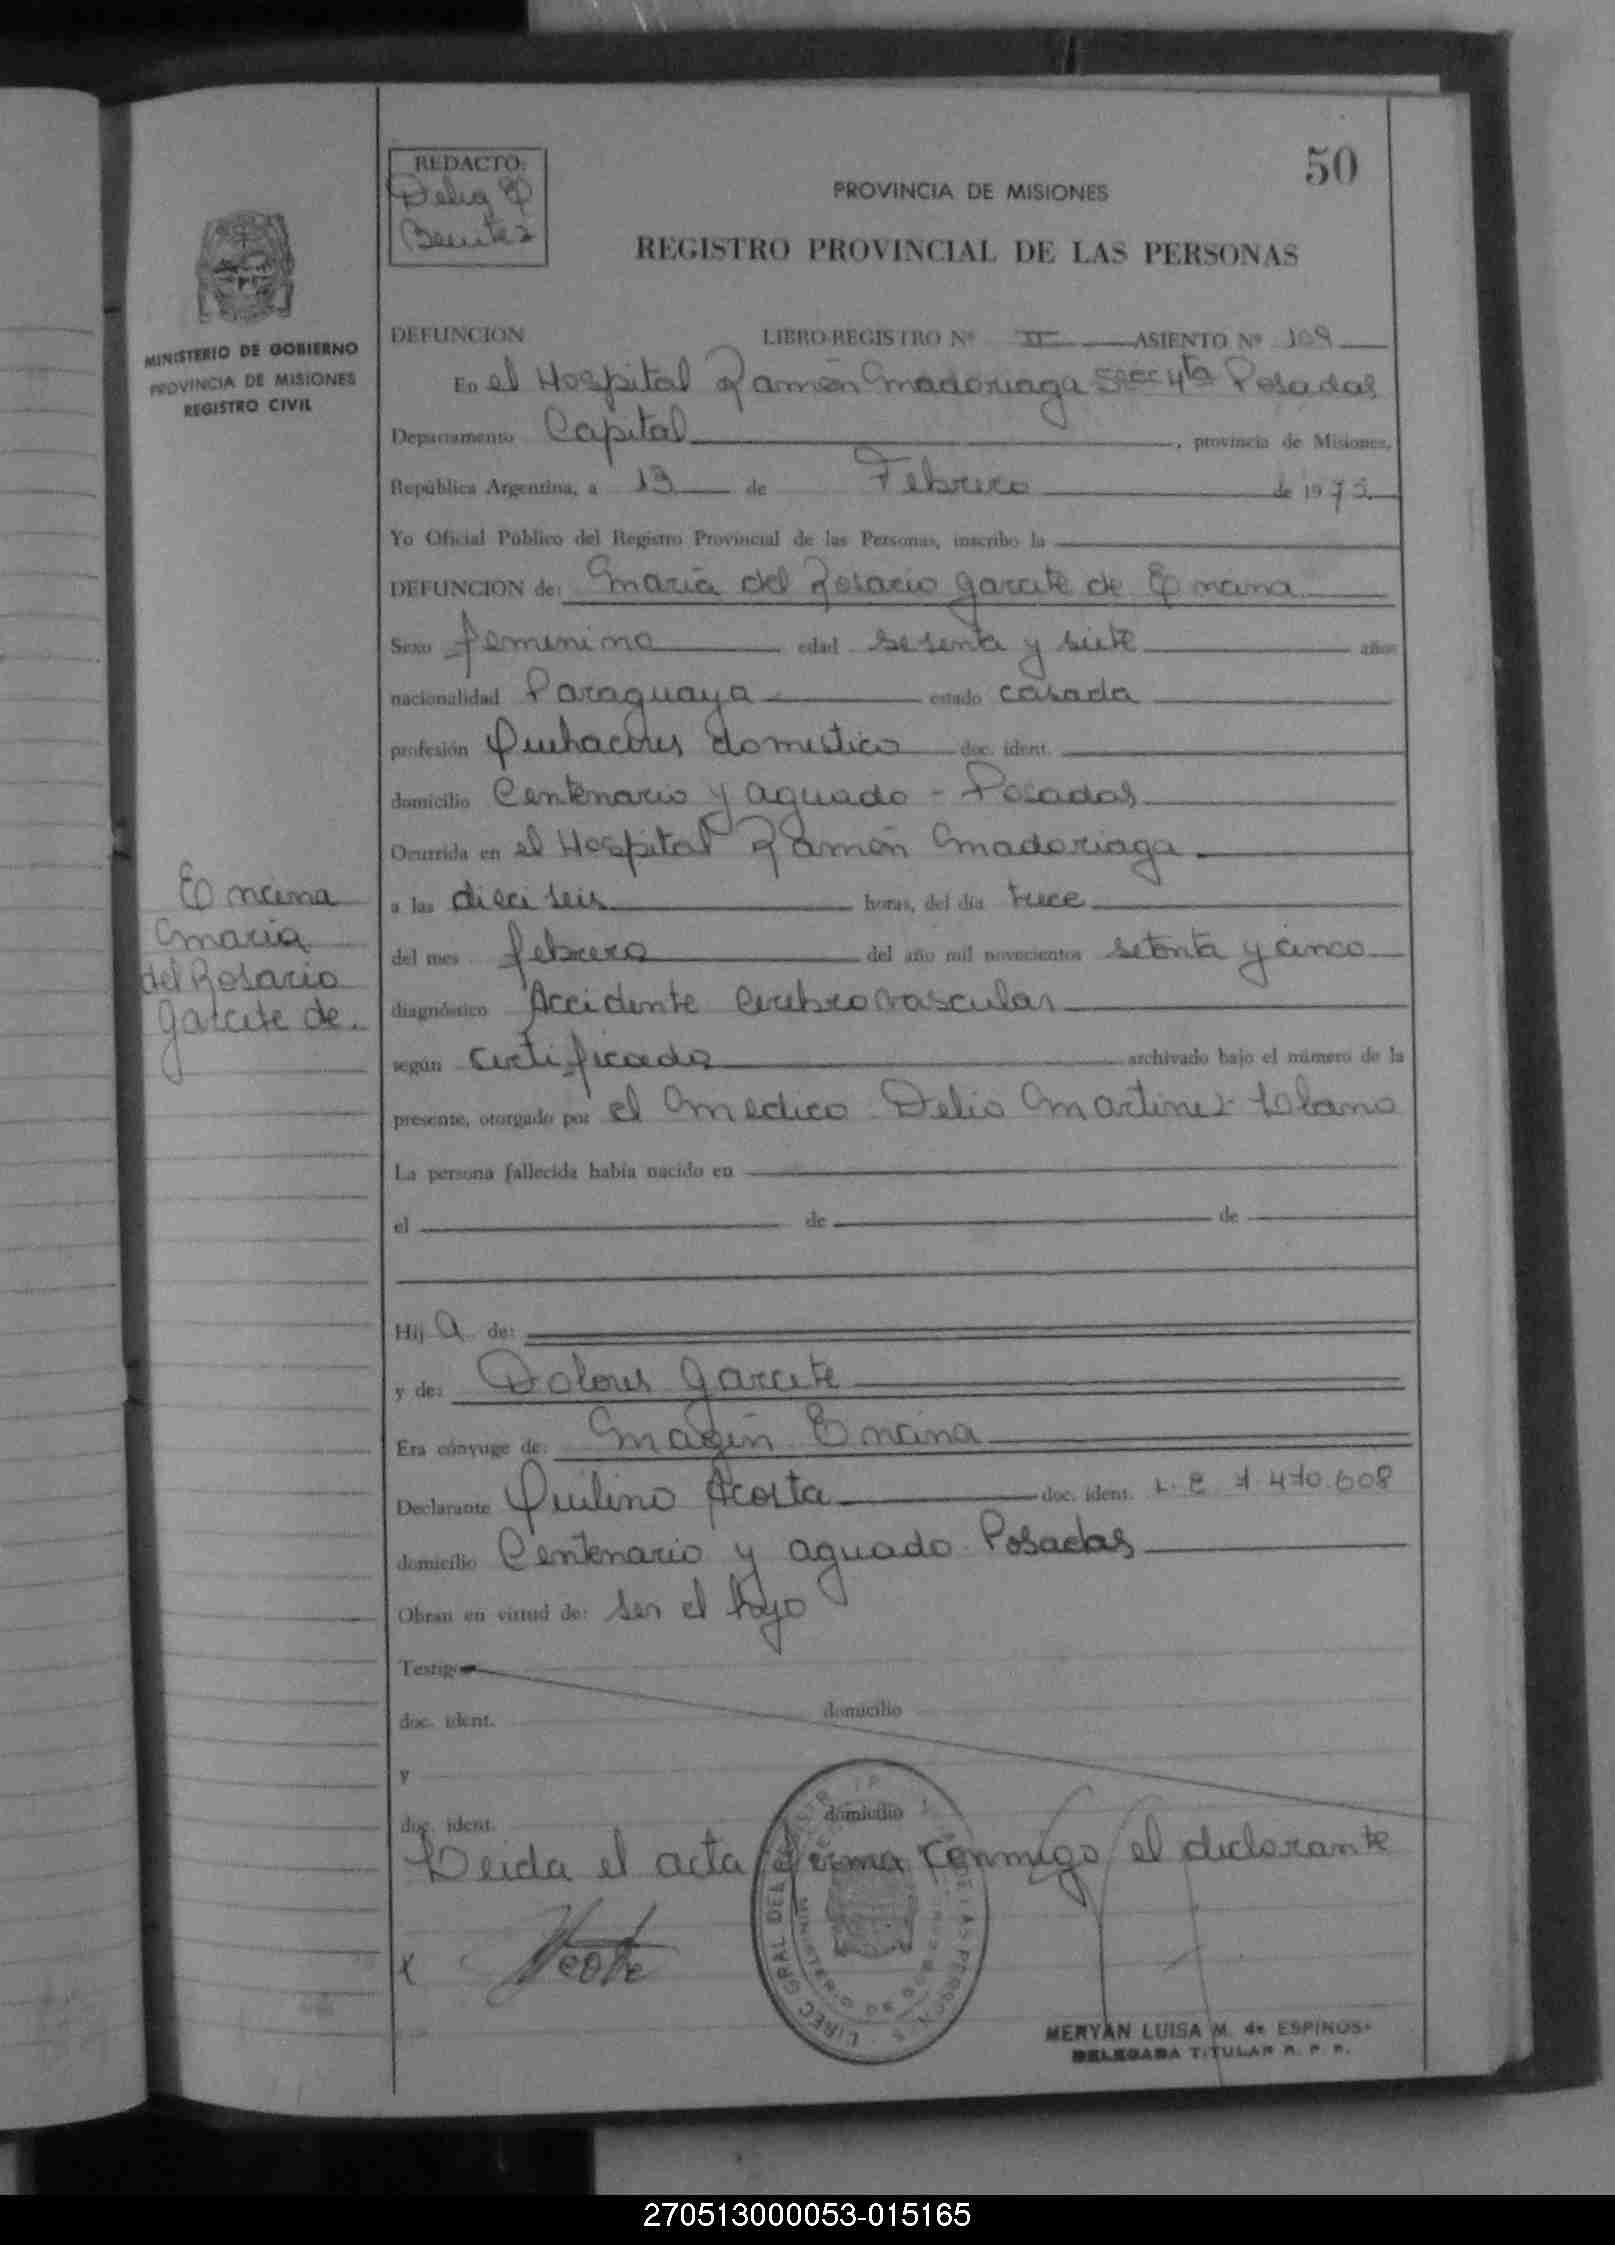 50
REDACTO:
Delia E
Benitez
PROVINCIA DE MISIONES
REGISTRO PROVINCIAL DE LAS PERSONAS
MINISTERIO DE GOBIERNO
PROVINCIA DE MISIONES
REGISTRO CIVIL
DEFUNCION LIBRO-REGISTRO Nº II ASIENTO Nº 109
En el Hospital Ramón Madoriaga Secc 4ta Posadas
Departamento Capital, provincia de Misiones,
República Argentina, a 13 de Febrero de 1975
Yo Oficial Público del Registro Provincial de las Personas, inscribo la
DEFUNCION de: Maria del Rosario Garcete de Encina
Sexo femenino edad sesenta y siete años
nacionalidad Paraguaya estado casada
profesión Quehaceres domestico doc. ident.
domicilio Centenario y aguado - Posadas
Ocurrida en el Hospital Ramón Madoriaga
a las dieci seis horas, del día trece
del mes febrero del año mil novecientos setenta y cinco
diagnóstico Accidente cerebro vascular
según certificado archivado bajo el número de la
presente, otorgado por el Medico Delio Martinez
La persona fallecida había nacido en
el de de
Encina
Maria
del Rosario
Garcete de.
Hij a de:
y de: Dolores Garcete
Era cónyuge de: Magin Encina
Declarante Quilino Acosta doc. ident. L. E 7.470.608
domicilio Centenario y aguado Posadas
Obran en virtud de: ser el hijo
Testigo
doc. ident. domicilio
y
doc. ident. domicilio
Leida el acta firma conmigo el declarante
x Acosta
DIREC. GRAL. DEL REGISTR. DE LAS PERSONAS
MINISTERIO DE GOBIERNO
MERYAN LUISA M. de ESPINOSA
DELEGADA TITULAR R. P. P.
270513000053-015165